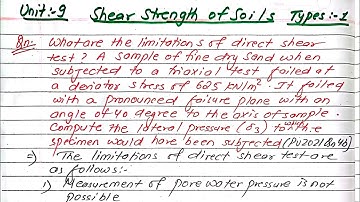 Unit:-9 Shear Strength of Soils Types:-1
Qn:- What are the limitations of direct shear
test? A sample of fine dry sand when
subjected to a triaxial test failed at
a deviator stress of 625 kN/m². It failed
with a pronounced faisure plane with an
angle of 40 degree to the axis of sample.
Compute the lateral pressure (σ3) to which
specimen would have been subjected (PU2021 Qn4b)
=) The limitations of direct shear test are
as follows:-
1) Measurement of pore water pressure is not
possible